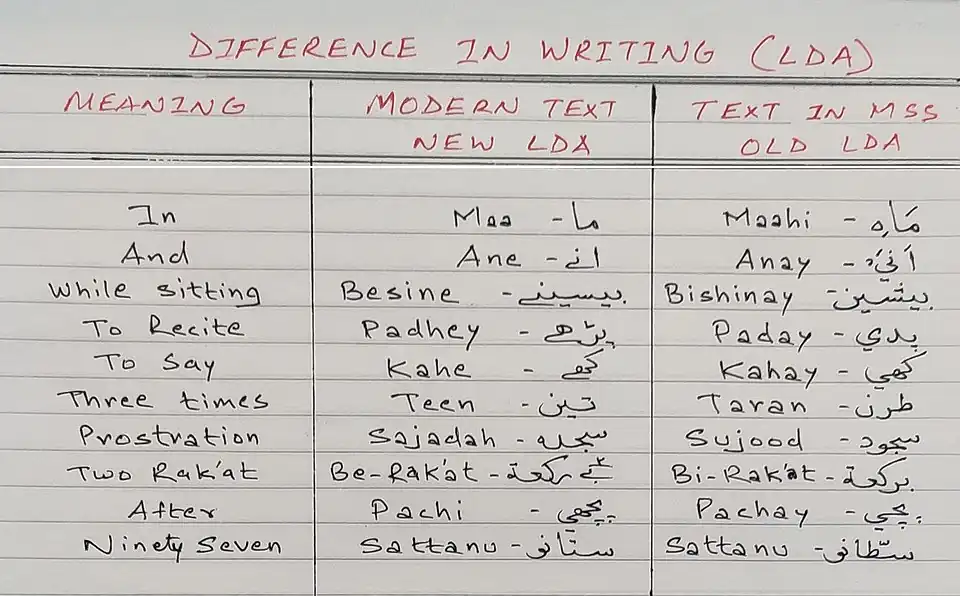 DIFFERENCE IN WRITING (LDA)
MEANING MODERN TEXT TEXT IN MSS
NEW LDA OLD LDA
In Maa - ما Maahi - مَاهِ
And Ane - انے Anay - اَنيَ
While sitting Besine - بيسينے Bishinay - بيشين
To Recite Padhey - پڑھے Paday - پدي
To Say Kahe - کہے Kahay - کهي
Three times Teen - تين Taran - طرن
Prostration Sajadah - سجده Sujood - سجود
Two Rak'at Be-Rak'at - بے ركعة Bi-Rak'at - بركعة
After Pachi - پچھي Pachay - پچي
Ninety Seven Sattanu - ستانو Sattanu - سطّانو